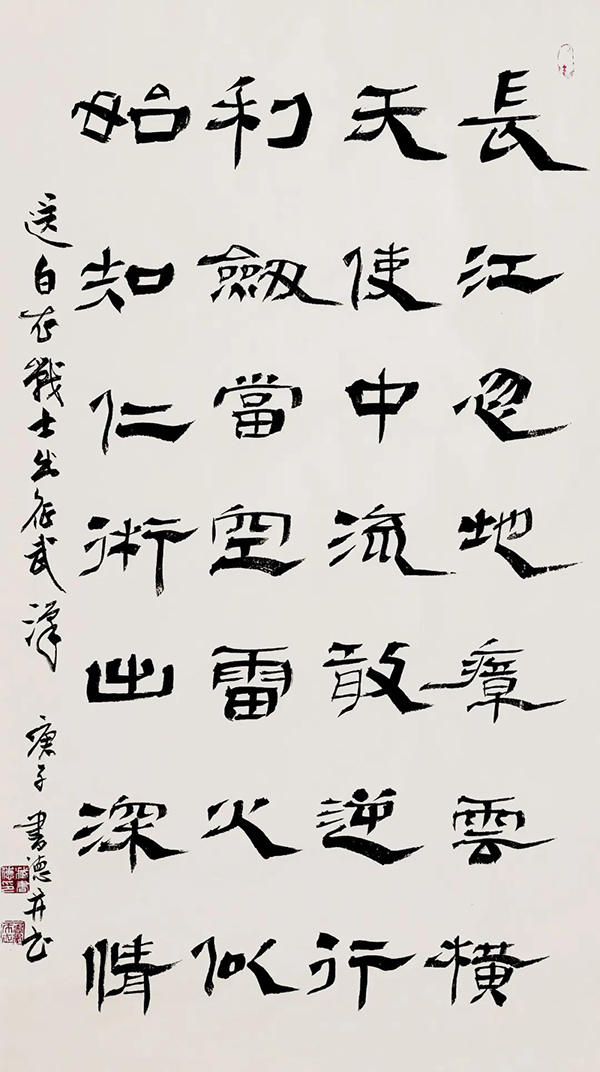 長江忽地瘴雲橫
天使中流敢逆行
利劍當空雷火似
始知仁術出深情
送白衣戰士出征武漢 庚子 書德井書